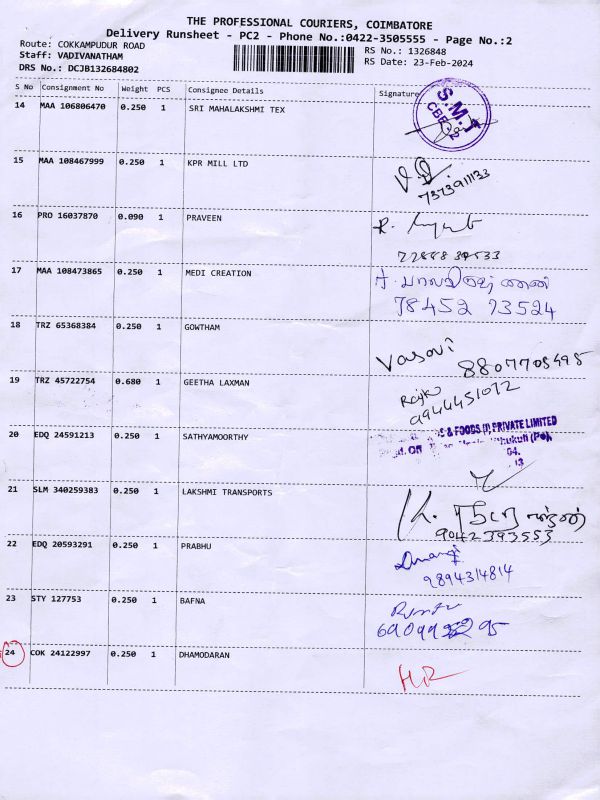 THE PROFESSIONAL COURIERS, COIMBATORE
Delivery Runsheet - PC2 - Phone No.:0422-3505555 - Page No.:2
Route: COKKAMPUDUR ROAD
RS No.: 1326848
Staff: VADIVANATHAM
RS Date: 23-Feb-2024
DRS No.: DCJB132684802
S No Consignment No Weight PCS Consignee Details Signature
14 MAA 106806470 0.250 1 SRI MAHALAKSHMI TEX
S.M.T
CBE
15 MAA 108467999 0.250 1 KPR MILL LTD
7373911133
16 PRO 16037870 0.090 1 PRAVEEN
R.
17 MAA 108473865 0.250 1 MEDI CREATION
78452 73524
18 TRZ 65368384 0.250 1 GOWTHAM
Vasavi
8807705495
19 TRZ 45722754 0.680 1 GEETHA LAXMAN
9944451072
20 EDQ 24591213 0.250 1 SATHYAMOORTHY
& FOODS (I) PRIVATE LIMITED
21 SLM 340259383 0.250 1 LAKSHMI TRANSPORTS
K.
9042393553
22 EDQ 20593291 0.250 1 PRABHU
9894314814
23 STY 127753 0.250 1 BAFNA
24 COK 24122997 0.250 1 DHAMODARAN